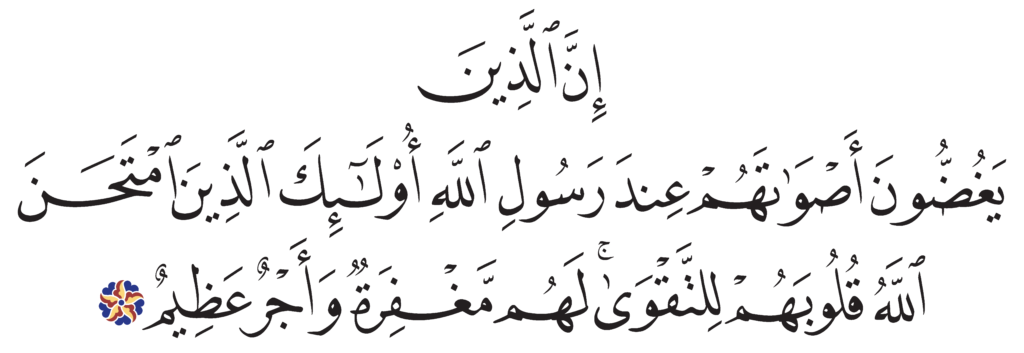 إِنَّ ٱلَّذِينَ
يَغُضُّونَ أَصْوَٰتَهُمْ عِندَ رَسُولِ ٱللَّهِ أُو۟لَـٰٓئِكَ ٱلَّذِينَ ٱمْتَحَنَ
ٱللَّهُ قُلُوبَهُمْ لِلتَّقْوَىٰ ۚ لَهُم مَّغْفِرَةٌ وَأَجْرٌ عَظِيمٌ